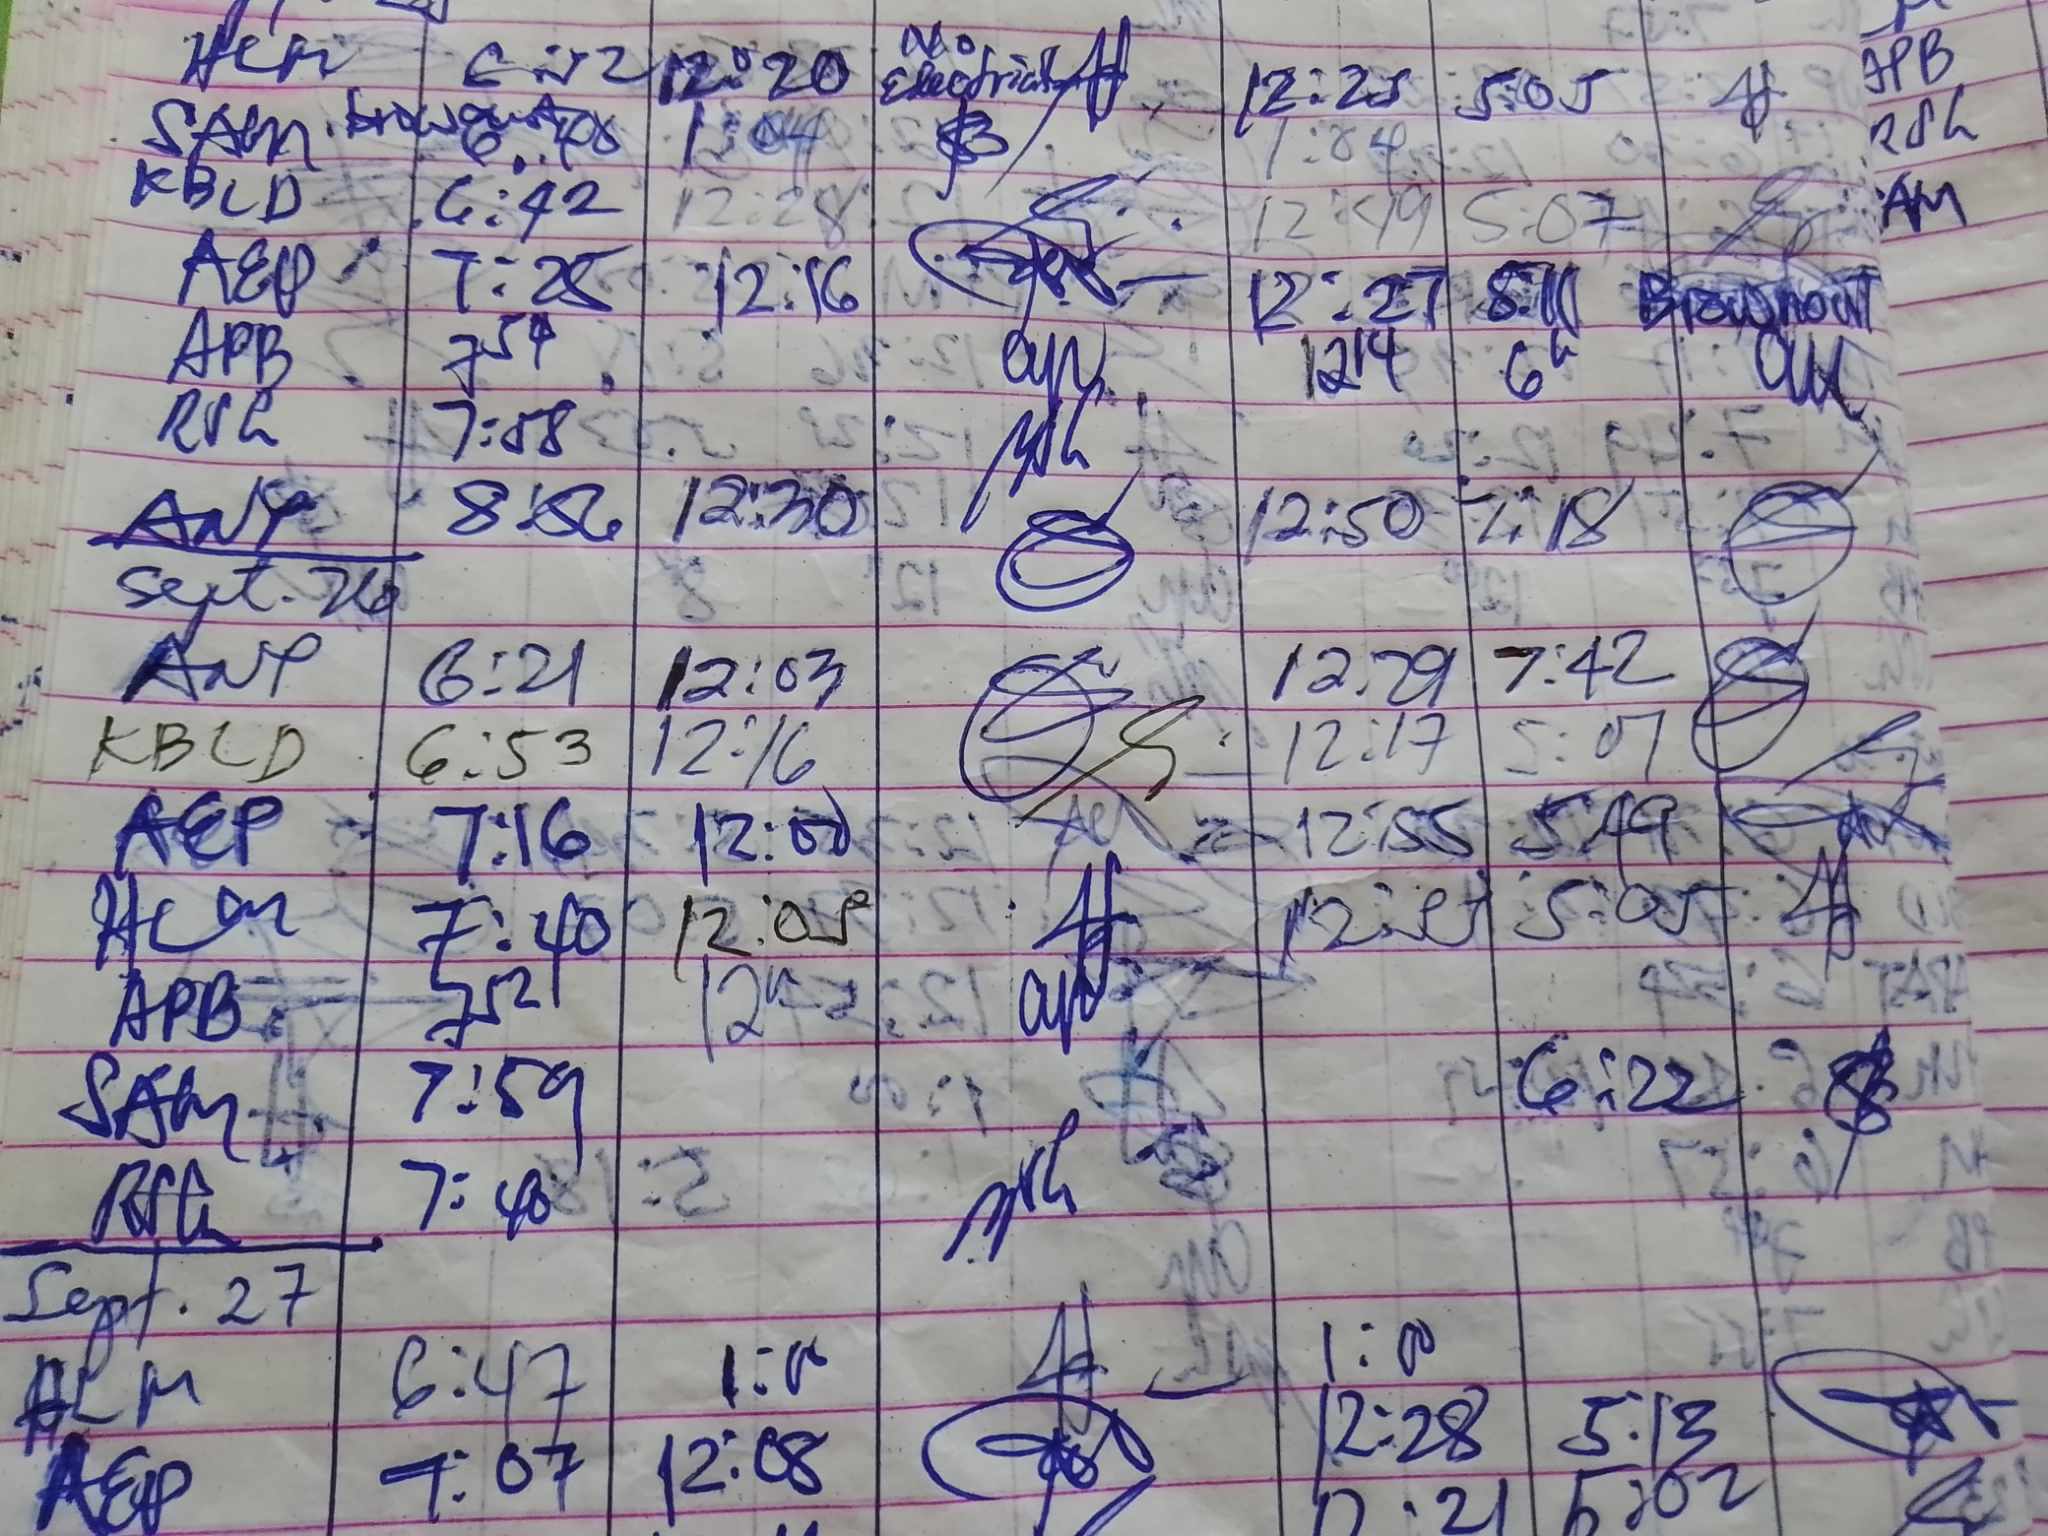 HLM 6:52 12:20 No electricity 12:25 5:05
SAM brownout 6:48 1:04 1:04
KBLD 6:42 12:28 12:49 5:07
AEP 7:25 12:16 12:27 5:11 Brownout
APB 7 54 12 14 6
RSL 7:58
ANP 8:56 12:30 12:50 7:18
Sept. 26
ANP 6:21 12:03 12:29 7:42
KBLD 6:53 12:16 12:17 5:07
AEP 7:16 12:00 12:55 5:49
HLM 7:40 12:05 5:05
APB 7 52 12
SAM 7:59 6:22
RSL 7:40
Sept. 27
HLM 6:47 1:00 1:00
AEP 7:07 12:08 12:28 5:13
12:21 5:02
APB
RSL
AM